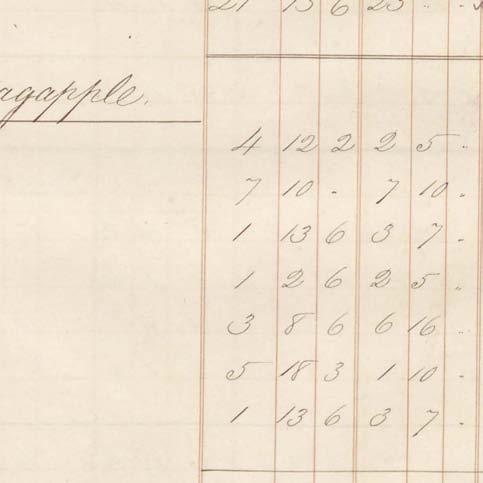 21 13 6 23 " "
agapple.
4 12 2 2 5 "
7 10 - 7 10 "
1 13 6 3 7 -
1 2 6 2 5 "
3 8 6 6 16 "
5 18 3 1 10 -
1 13 6 3 7 -